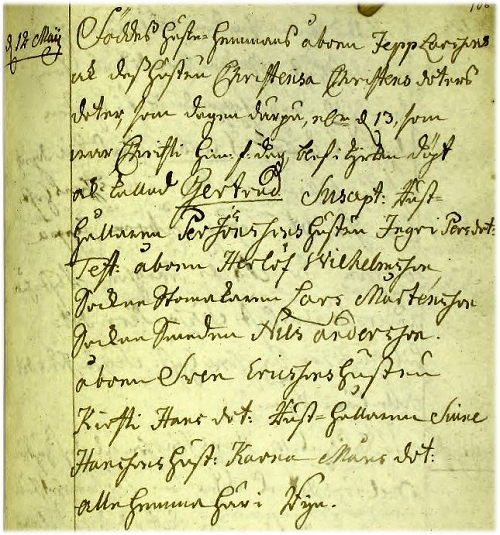 d 12 Maÿ
Föddes Huss-hemmans åboen Jepp Larssons
ok dess Hustru Christensa Christens doters
doter som dagen därpå, näml. d 13, som
war Christi Him: f: dag, blef i kyrkan döpt
ok kallad Gertrud Suscept: Hust-
hållaren Per Jönssons hustru Ingri Pers det:
Test: åboen Herlöf Wilhelmsson
Socken Skomakaren Lars Mårtensson
Socken Smeden Nils andersson.
åboen Swen Ericssons hustru
Kirsti Hans dot: Hust-hållaren Sune
Hanssons hust: Karna Måns dot:
alle hemma här i Byn.